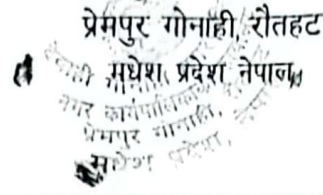 प्रेमपुर गोनाही, रौतहट
मधेश प्रदेश नेपाल
नगर कार्यपालिका
प्रेमपुर गोनाही,
मधेश प्रदेश,